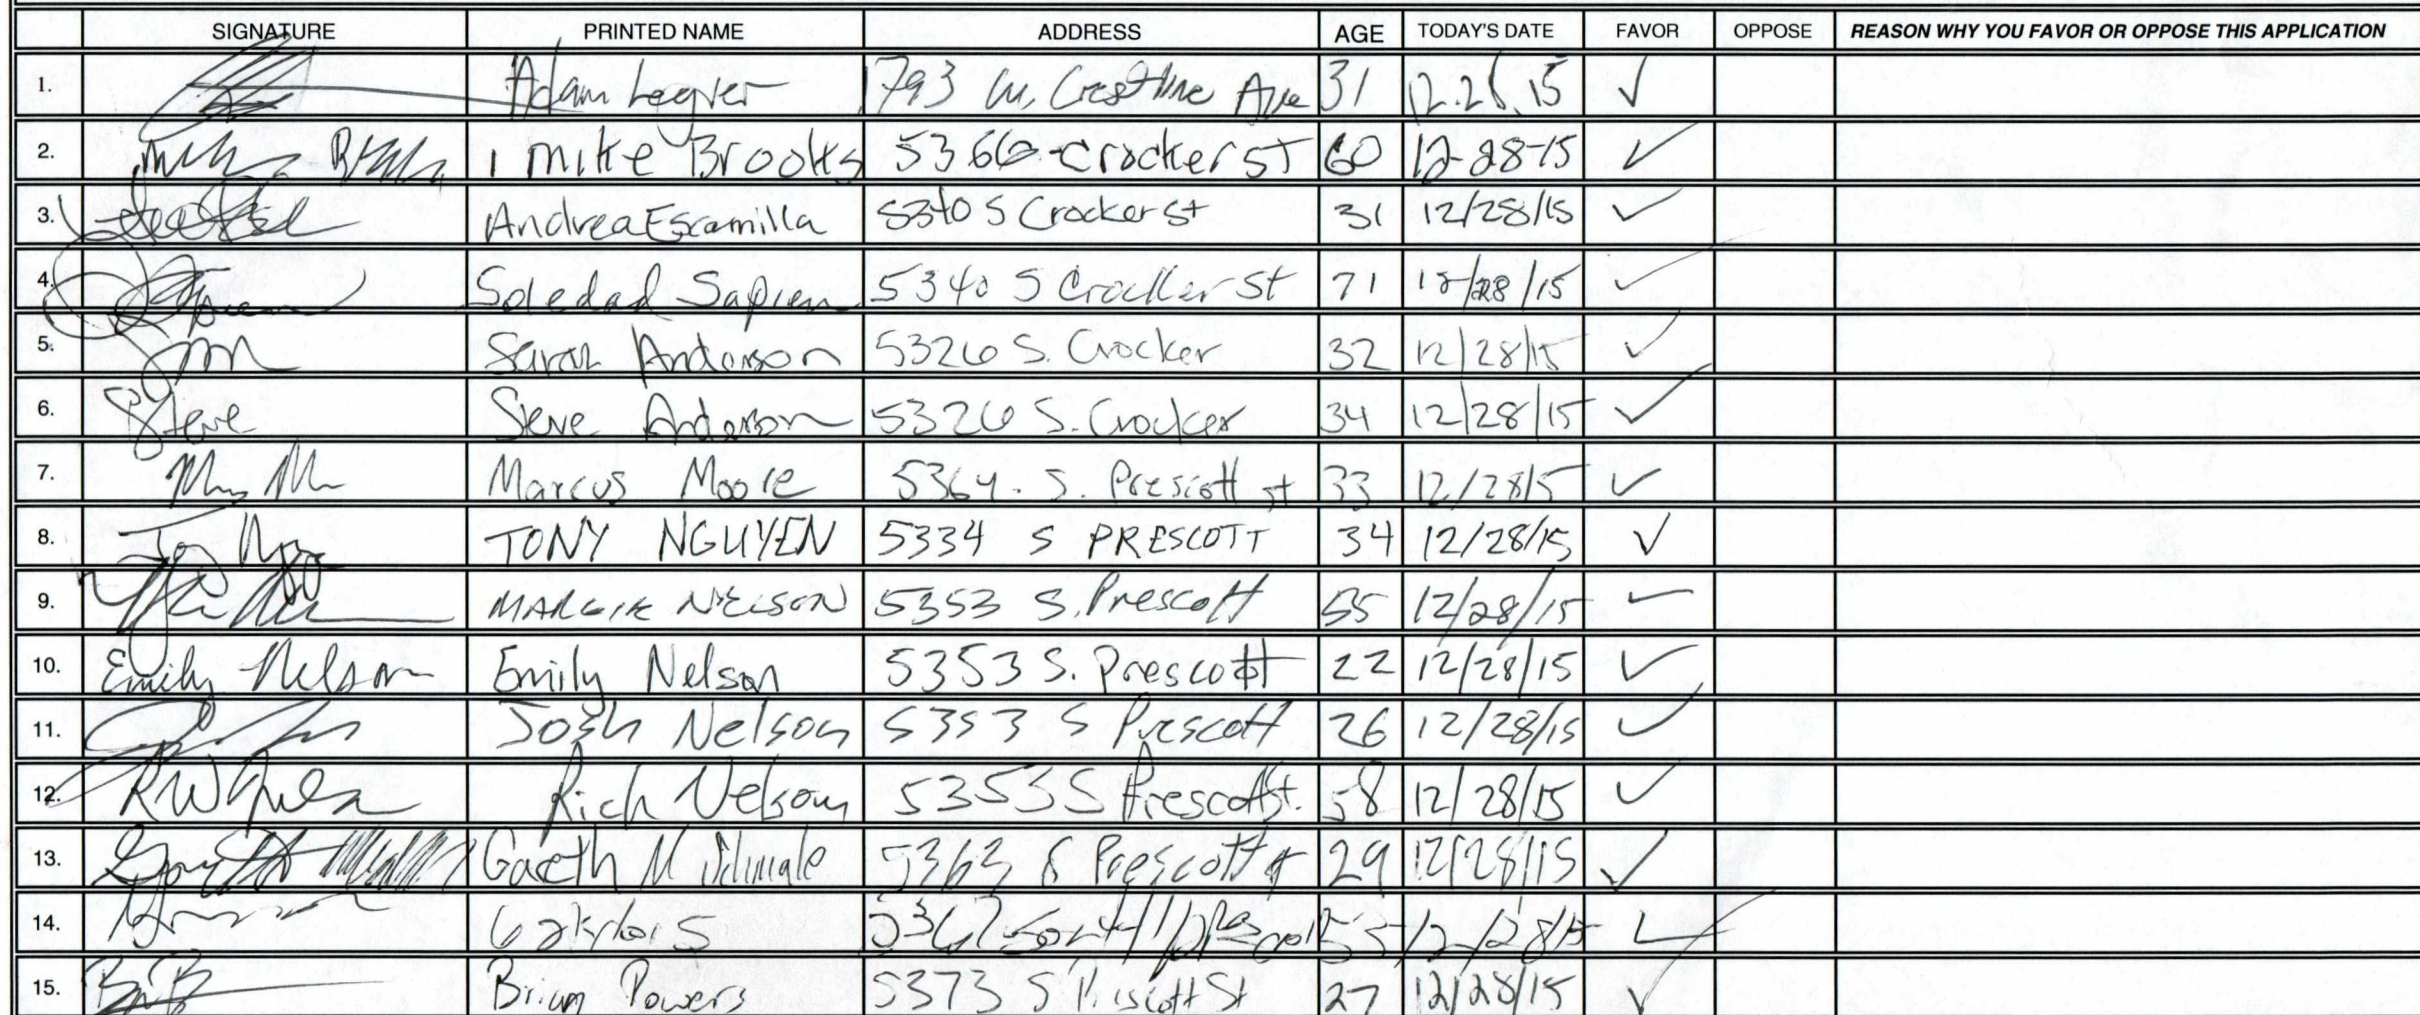 SIGNATURE PRINTED NAME ADDRESS AGE TODAY'S DATE FAVOR OPPOSE REASON WHY YOU FAVOR OR OPPOSE THIS APPLICATION
1. Adam 1793 W. Crestline Ave 31 12.28.15 ✓
2. Mike Brooks 5360 Crocker ST 60 12-28-15 ✓
3. Andrea Escamilla 5340 S Crocker St 31 12/28/15 ✓
4. Soledad Sapien 5340 S Crocker St 71 12/28/15 ✓
5. Sarah Anderson 5326 S. Crocker 32 12/28/15 ✓
6. Steve Steve Anderson 5326 S. Crocker 34 12/28/15 ✓
7. Marcus Moore 5364. S. Prescott st 33 12/28/15 ✓
8. TONY NGUYEN 5334 S PRESCOTT 34 12/28/15 ✓
9. MARGIE NELSON 5353 S. Prescott 55 12/28/15 ✓
10. Emily Nelson Emily Nelson 5353 S. Prescott 22 12/28/15 ✓
11. Josh Nelson 5353 S Prescott 26 12/28/15 ✓
12. Rich Nelson 5353 S Prescott St. 58 12/28/15 ✓
13. Gareth M 5363 S Prescott 29 12/28/15 ✓
14. South 55 12/28/15 ✓
15. Brian Powers 5373 S Prescott St 27 12/28/15 ✓